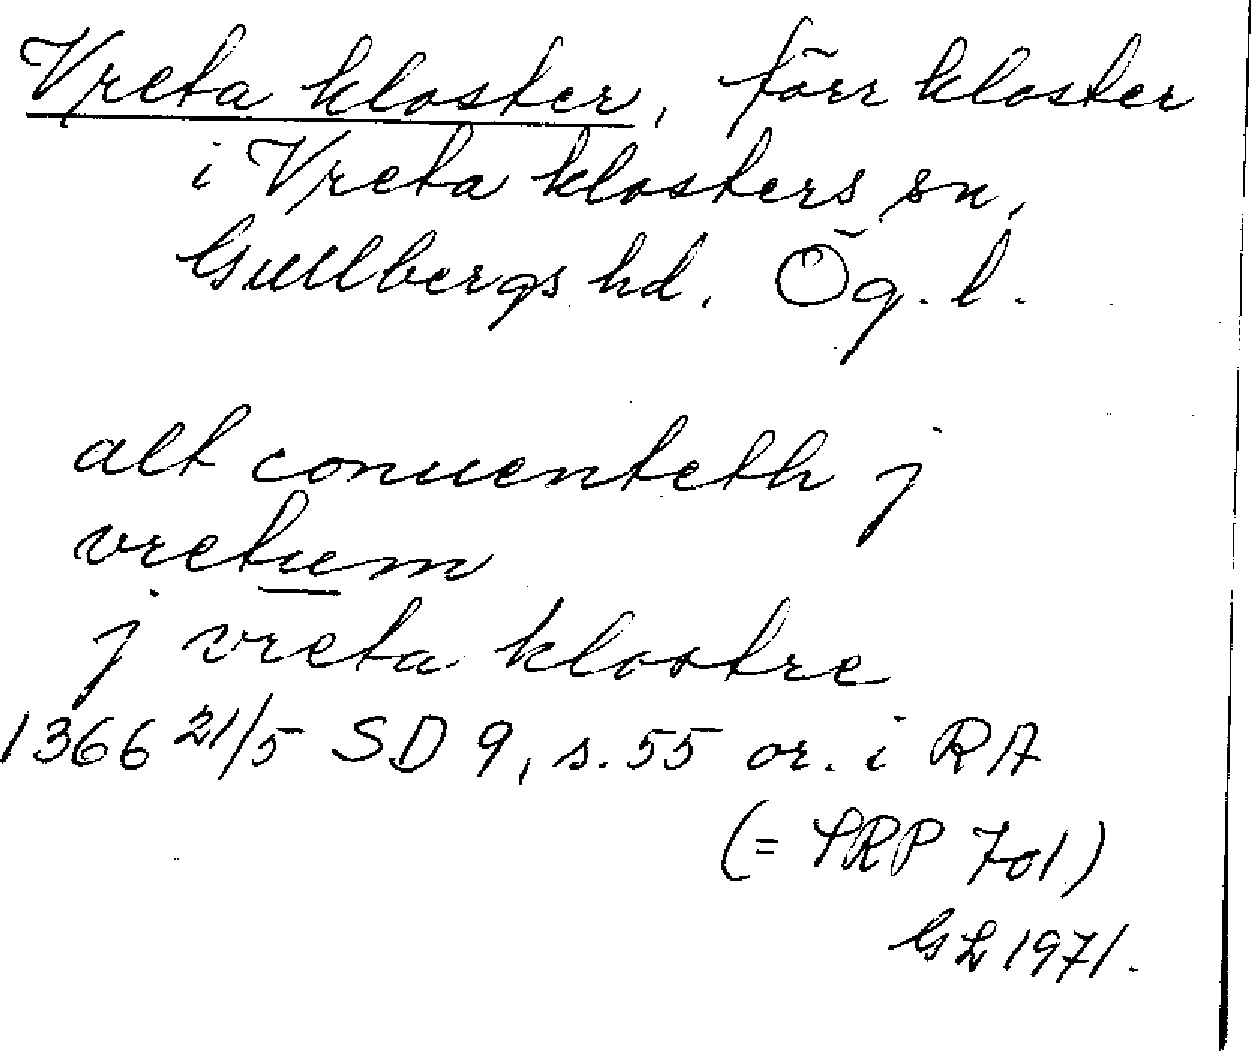 Vreta kloster, förr kloster
i Vreta klosters sn,
Gullbergs hd. Ög. l.
alt conuenteth j
vretum
j vreta klostre
1366 21/5 SD 9, s. 55 or. i RA
(= SRP 701)
GL 1971.